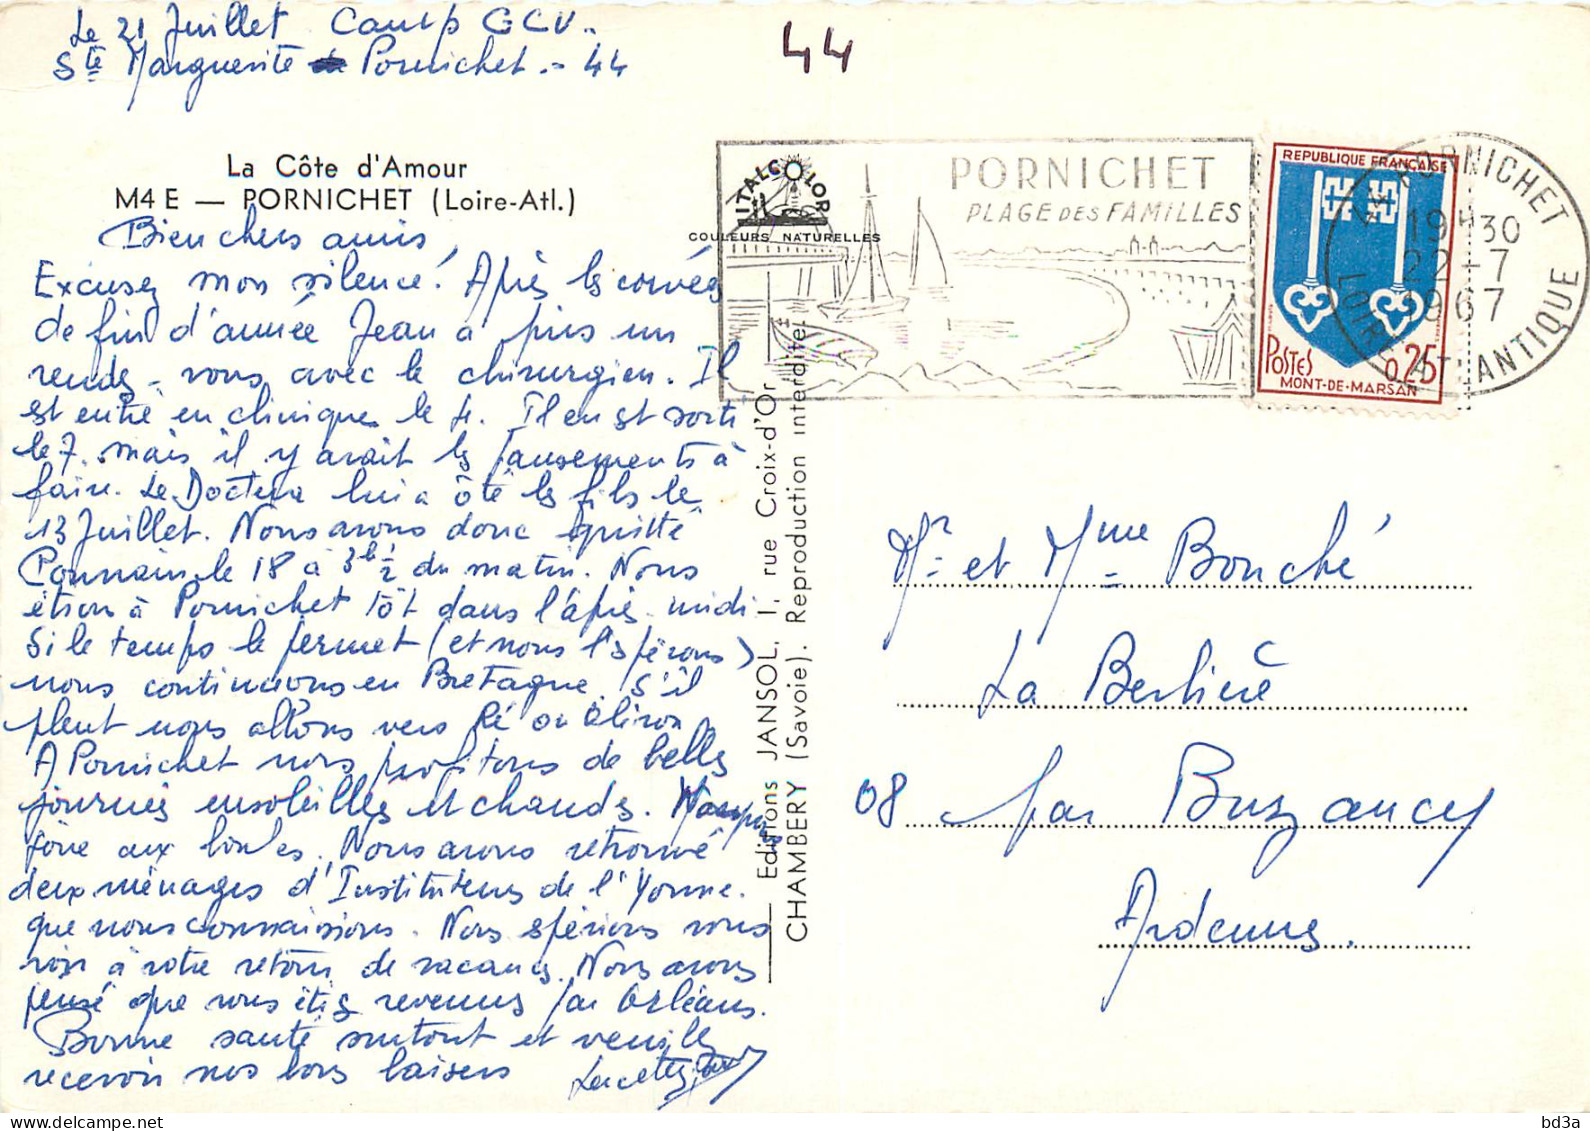 Le 21 Juillet Camp GCU.
Ste Marguerite Pornichet. - 44
44
La Côte d'Amour
M4 E — PORNICHET (Loire-Atl.)
Bien chers amis,
Excusez mon silence. Après les corvées
de fin d'année Jean a pris un
rendez-vous avec le chirurgien. Il
est entré en clinique le 4. Il en est sorti
le 7. mais il y avait les pansements à
faire. Le Docteur lui a ôté les fils le
13 Juillet. Nous avons donc quitté
le 18 à 3h ½ du matin. Nous
étions à Pornichet tôt dans l'après-midi
Si le temps le permet (et nous l'espérons)
nous continuons en Bretagne. S'il
pleut nous allons vers Ré ou Oléron
A Pornichet nous profitons de belles
journées ensoleillées et chaudes.
foire aux boules. Nous avons retrouvé
deux ménages d'Instituteurs de l'Yonne.
que nous connaissions. Nous espérions vous
voir à votre retour de vacances. Nous avons
pensé que vous étiez revenus par Orléans.
Bonne santé surtout et veuillez
recevoir nos bons baisers
ITALCOLOR
COULEURS NATURELLES
Editions JANSOL, 1, rue Croix-d'Or
CHAMBERY (Savoie). Reproduction interdite.
PORNICHET
PLAGE DES FAMILLES
REPUBLIQUE FRANÇAISE
POSTES 0,25
MONT-DE-MARSAN
PORNICHET
19H30
22-7
1967
LOIRE ATLANTIQUE
Mr et Mme Bouché
La Berlière
08 par Buzancy
Ardennes.
bd3a